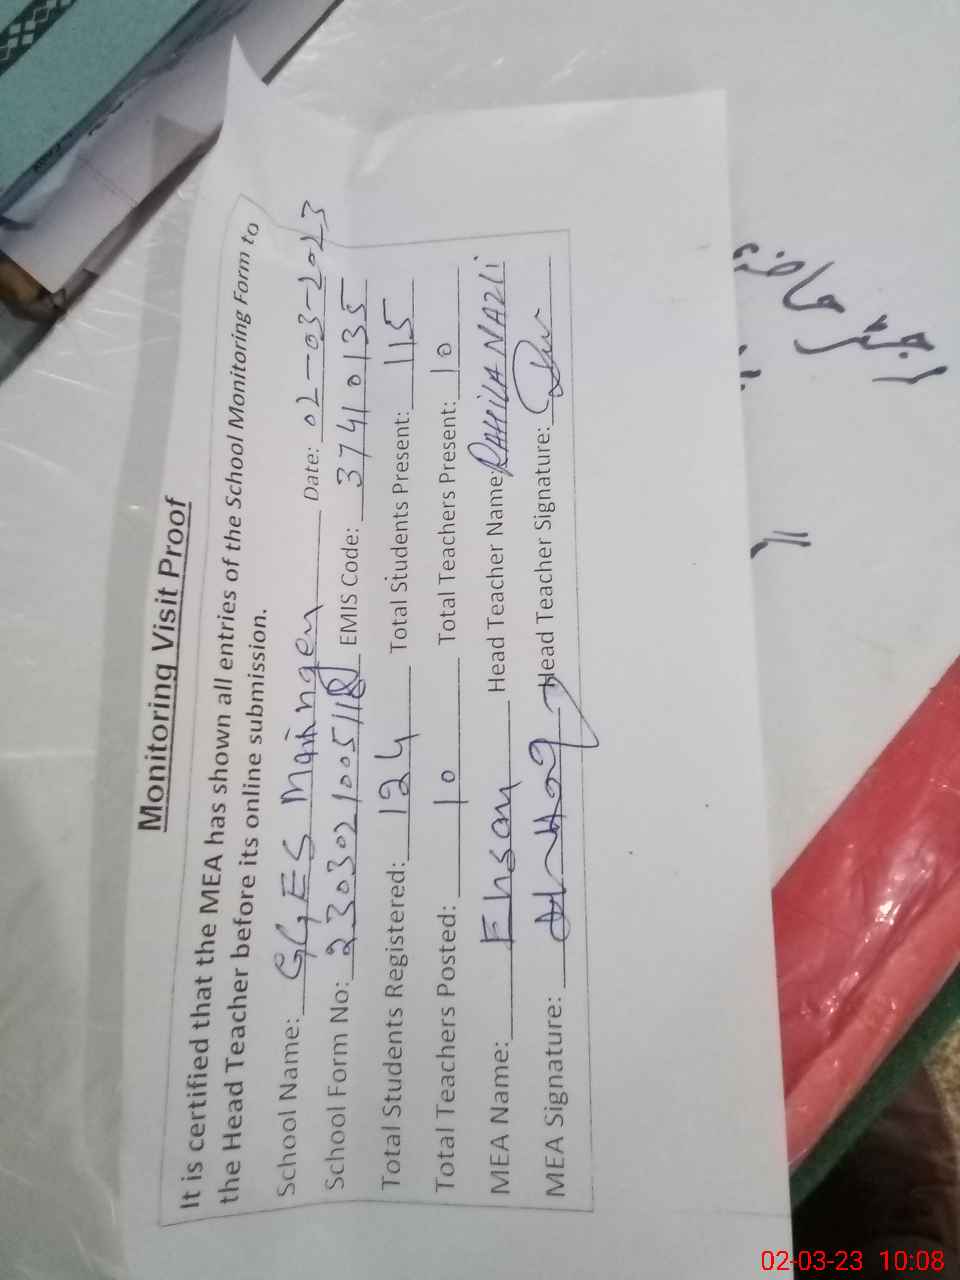 Monitoring Visit Proof
It is certified that the MEA has shown all entries of the School Monitoring Form to
the Head Teacher before its online submission.
School Name: GGES Maingen Date: 02-03-2023
School Form No: 230302100511 EMIS Code: 37410135
Total Students Registered: 124 Total Students Present: 115
Total Teachers Posted: 10 Total Teachers Present: 10
MEA Name: Ehsan Head Teacher Name: RAHILA NAZLI
MEA Signature: Head Teacher Signature:
02-03-23 10:08